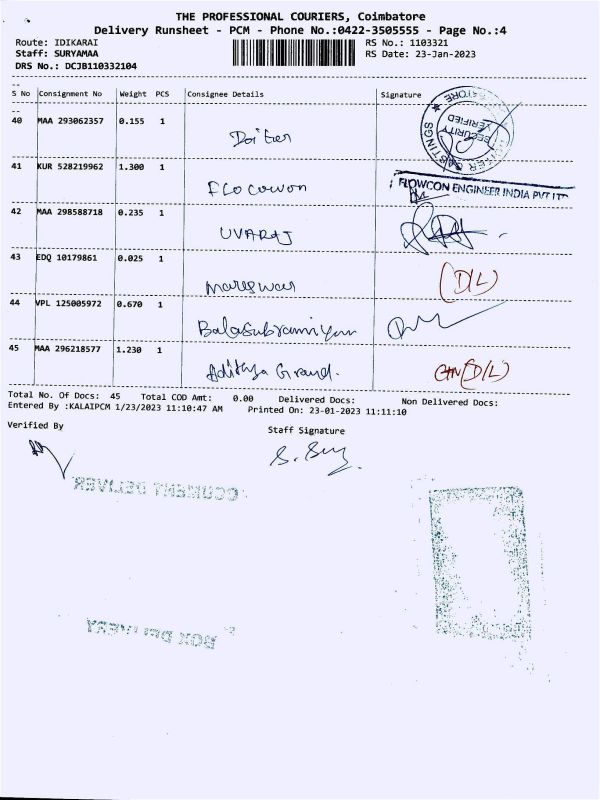 THE PROFESSIONAL COURIERS, Coimbatore
Delivery Runsheet - PCM - Phone No.:0422-3505555 - Page No.:4
Route: IDIKARAI RS No.: 1103321
Staff: SURYAMAA RS Date: 23-Jan-2023
DRS No.: DCJB110332104
S No Consignment No Weight PCS Consignee Details Signature
40 MAA 293062357 0.155 1
SECURITY
VERIFIED
41 KUR 528219962 1.300 1 Flocowon
FLOWCON ENGINEER INDIA PVT LTD
42 MAA 298588718 0.235 1 UVARAJ
43 EDQ 10179861 0.025 1 Mareswar (D/L)
44 VPL 125005972 0.670 1 Balasubramiyan
45 MAA 296218577 1.230 1 Adithya Grand. (D/L)
Total No. Of Docs: 45 Total COD Amt: 0.00 Delivered Docs: Non Delivered Docs:
Entered By :KALAIPCM 1/23/2023 11:10:47 AM Printed On: 23-01-2023 11:11:10
Verified By Staff Signature
OCUMENT DELIVER
BOX DELIVERY